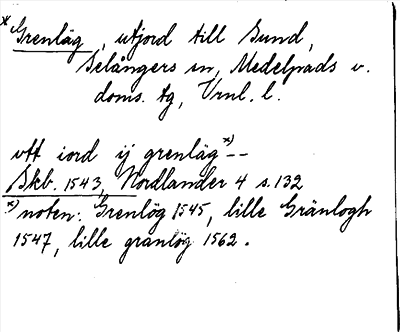 * Grenläg, utjord till Sund,
Selångers sn, Medelpads v.
doms. tg, Vrnl. l.
vtt iord ij grenläg *) --
Skb. 1543, Nordlander 4 s. 132
*) noten: Grenlög 1545, lille Gränlogh
1547, lille granlög 1562.